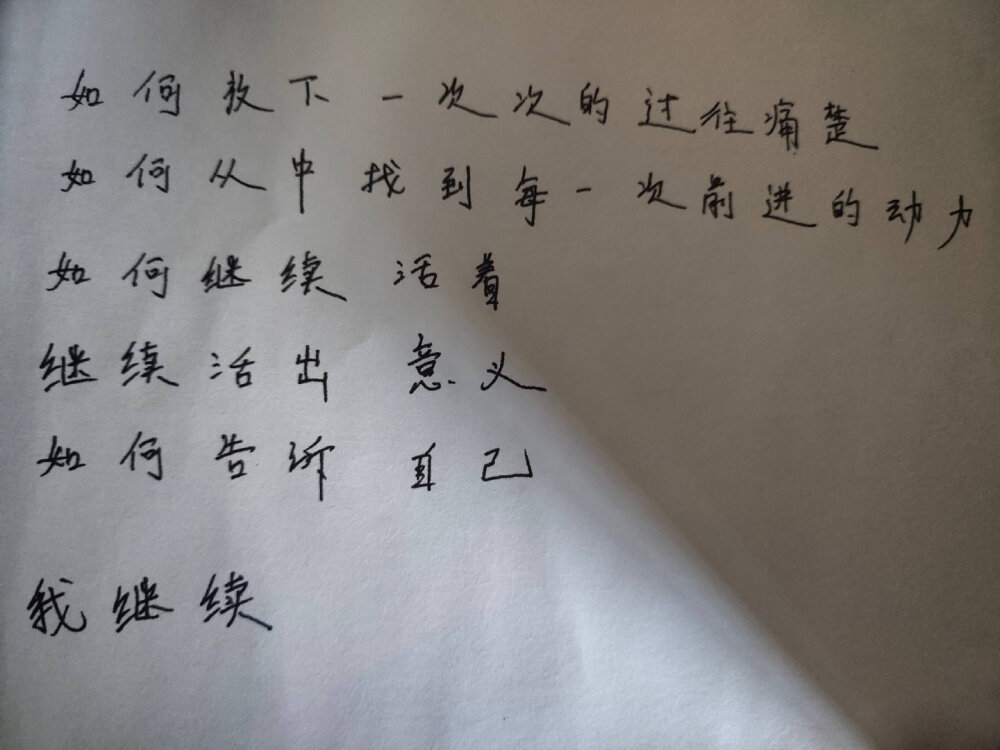 如何放下一次次的过往痛楚
如何从中找到每一次前进的动力
如何继续活着
继续活出意义
如何告诉自己
我继续